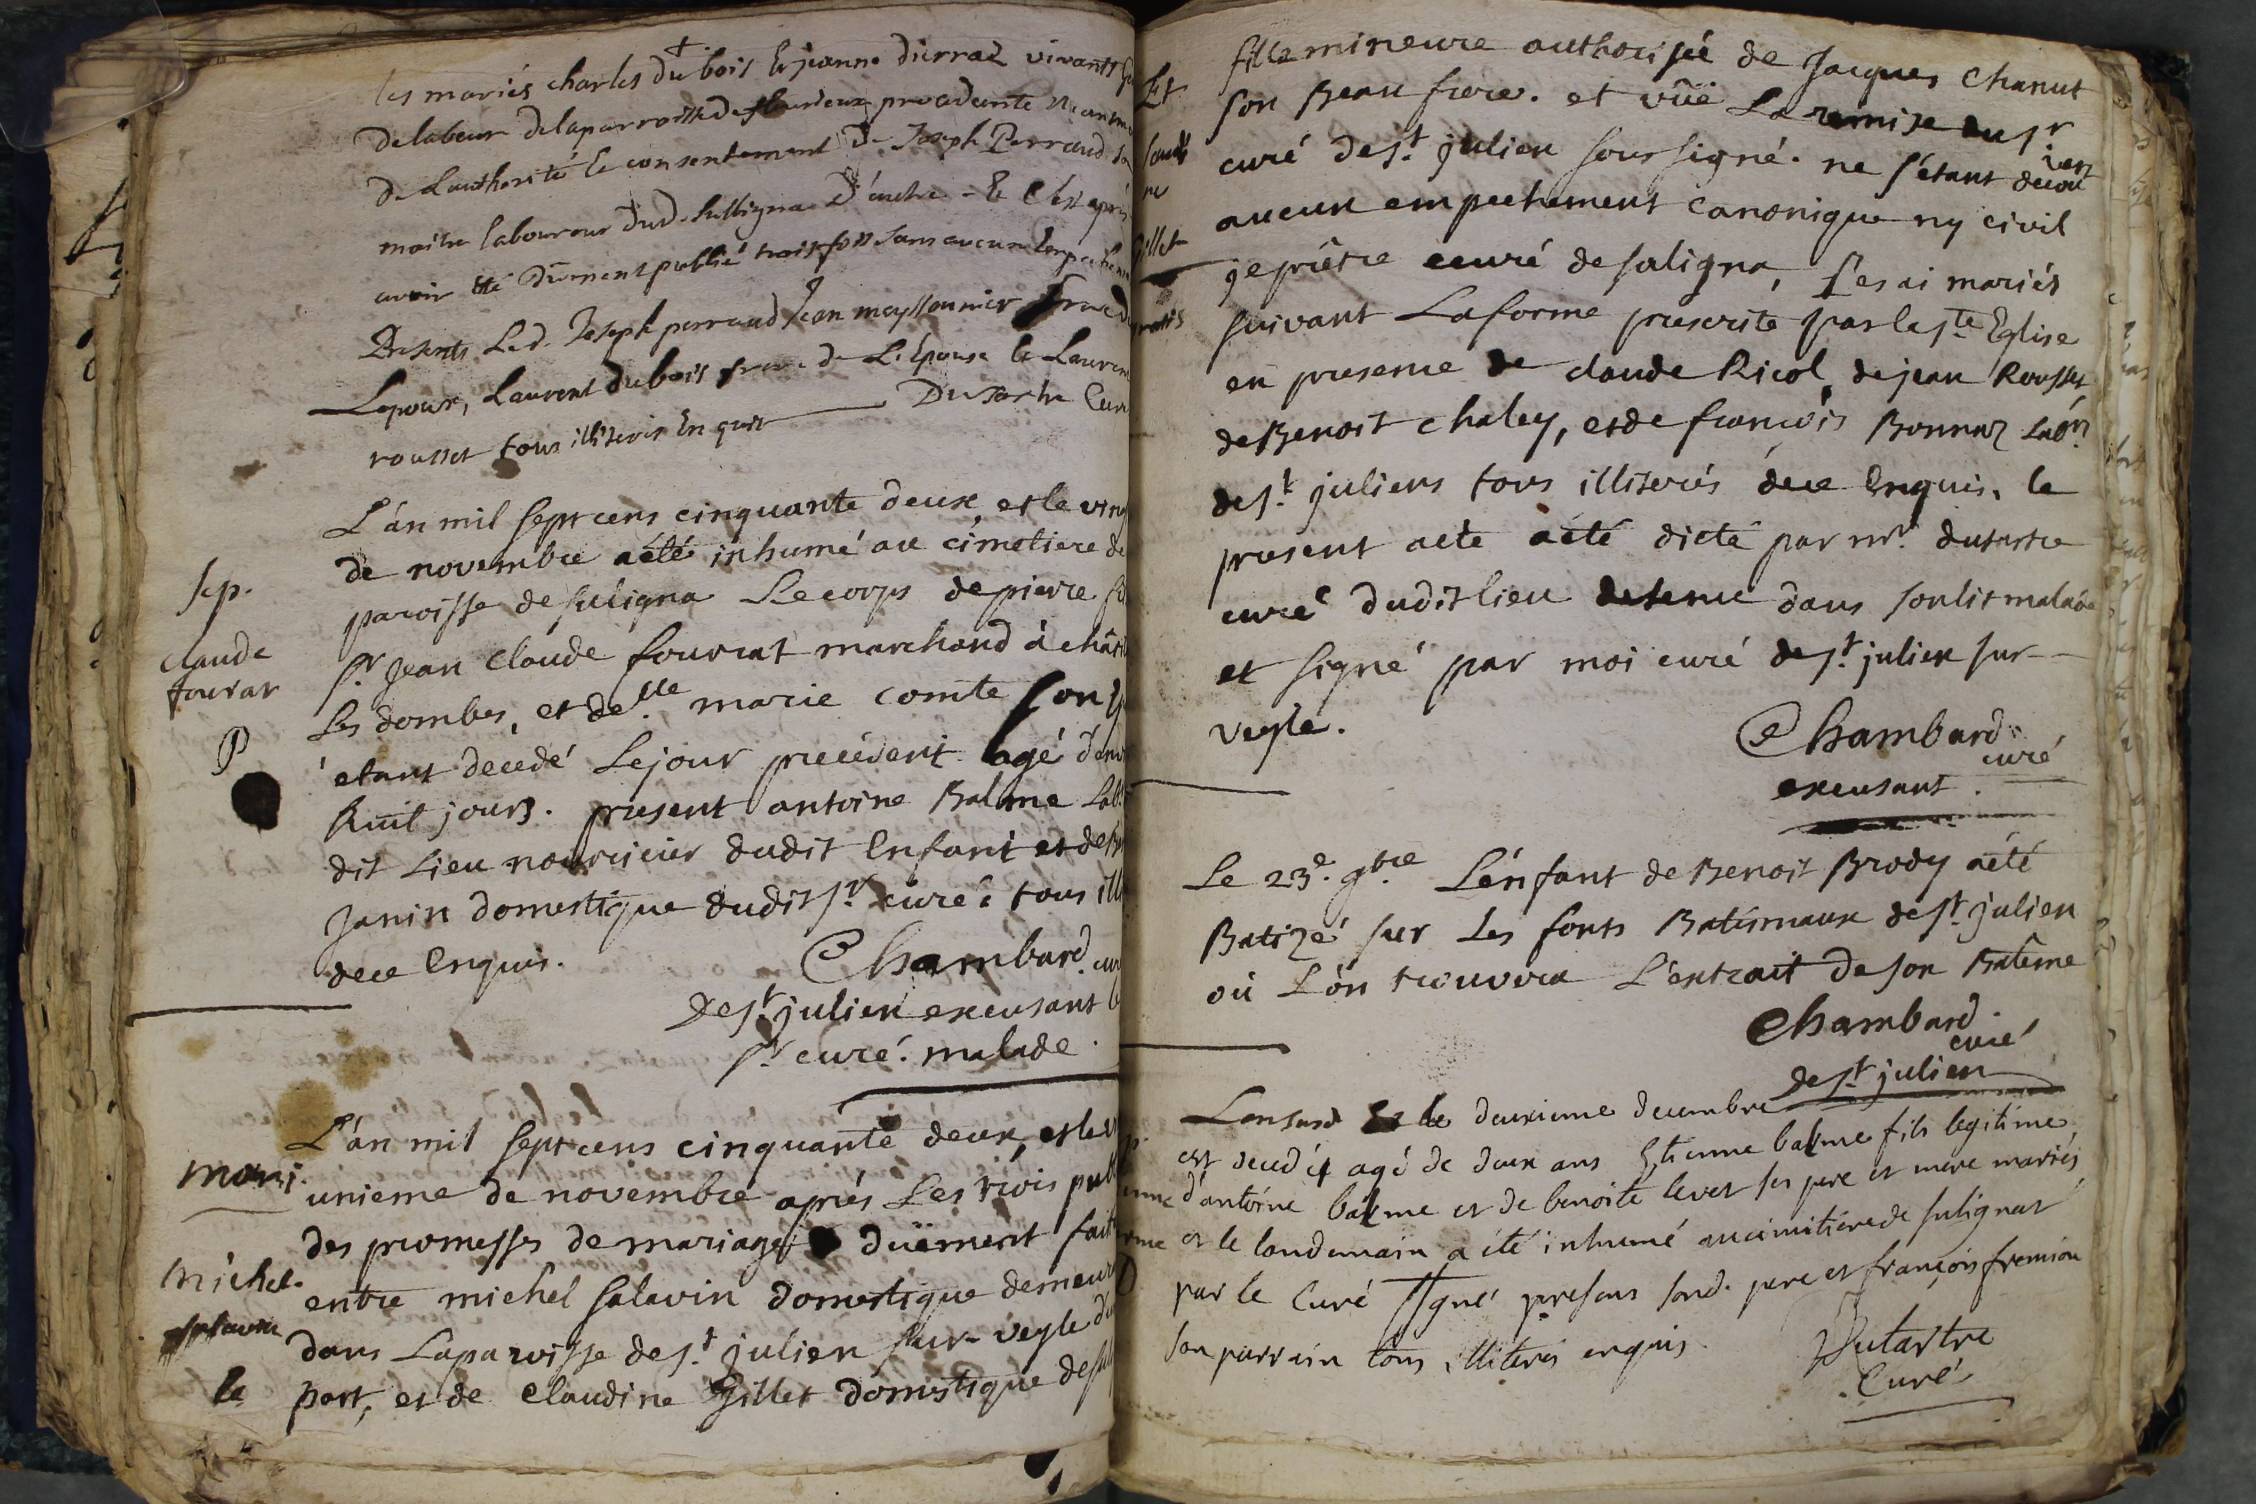 les mariés charles dubois Et jeanne durraz vivants
De labeur de la parroisse de procedente
De Lauthorité & consentement De Joseph Perraud
maitre laboureur dud. Sulligna D'autre - Et C
avoir été Dûment publié trois fois sans aucun Empechem
Présents Led. Joseph perraud Jean meyssonnier
Lepoux, Laurent dubois frere de L'Epouse & Lauren
rousset tous illiterés Enquis Dutartre Curé
L'an mil sept cens cinquante deux, et le vin
de novembre aété inhumé au cimetiere de
Sep.
paroisse de suligna Le corps de pierre
claude
Sr. Jean Claude fourrat marchand à châti
fourar
Les dombes, et de lle marie comte son
étant décédé Le jour precedent agé d'env
P
huit jours. present antoine Balme Lab.
dit Lieu nourricier dudit Enfant et de
Janin domestique dudit Sr. curé tous ill
dece Enquis.
Chambard curé
de St. julien excusant
Sr. curé malade.
L'an mil sept cens cinquante deux, et le v
Mari.
unieme de novembre apriés Les trois publ
des promesses de mariage duëment fait
michel
entre michel salavin domestique demeur
salavin
dans La paroisse de St. julien sur-veyle d'u
&
part, et de Claudine Gillet domestique de
Et
Gillet
fille mineure authorisée de Jacques Chanut
son Beau frere. et vûë La remise du Sr
curé de St. julien soussigné. ne s'étant decou
vert
aucun empechement canonique ny civil
je prêtre curé de suligna, Les ai mariés
suivant La forme prescrite par la Ste Eglise
en presence de claude Ricol, de jean Rousset
de Benoit chaley, et de françois Bonnaz Labrs
de St. juliens tous illiterés dece Enquis. le
present acte aété dicté par mr. dutartre
curé dudit lieu detenu dans son lit malade
et signé par moi curé de St. julien sur-
veyle.
Chambard
curé
excusant.
Le 23e. 9bre L'enfant de Benoit Brody aété
Batizé sur Les fonts Batismaux de St. julien
où L'on trouvera L'extrait de son Batême
Chambard.
curé
de St. julien
Lan susd Et le deuxieme decembre
est decedé agé de deux ans Etienne balme fils legitime
d'antoine balme et de benoite levet ses pere et mere mariés
et le landemain a été inhumé au cimitiére de sulignat
par le Curé ssgné presens sond. pere et françois fremion
son parrain tous illiterés enquis.
Dutartre
Curé